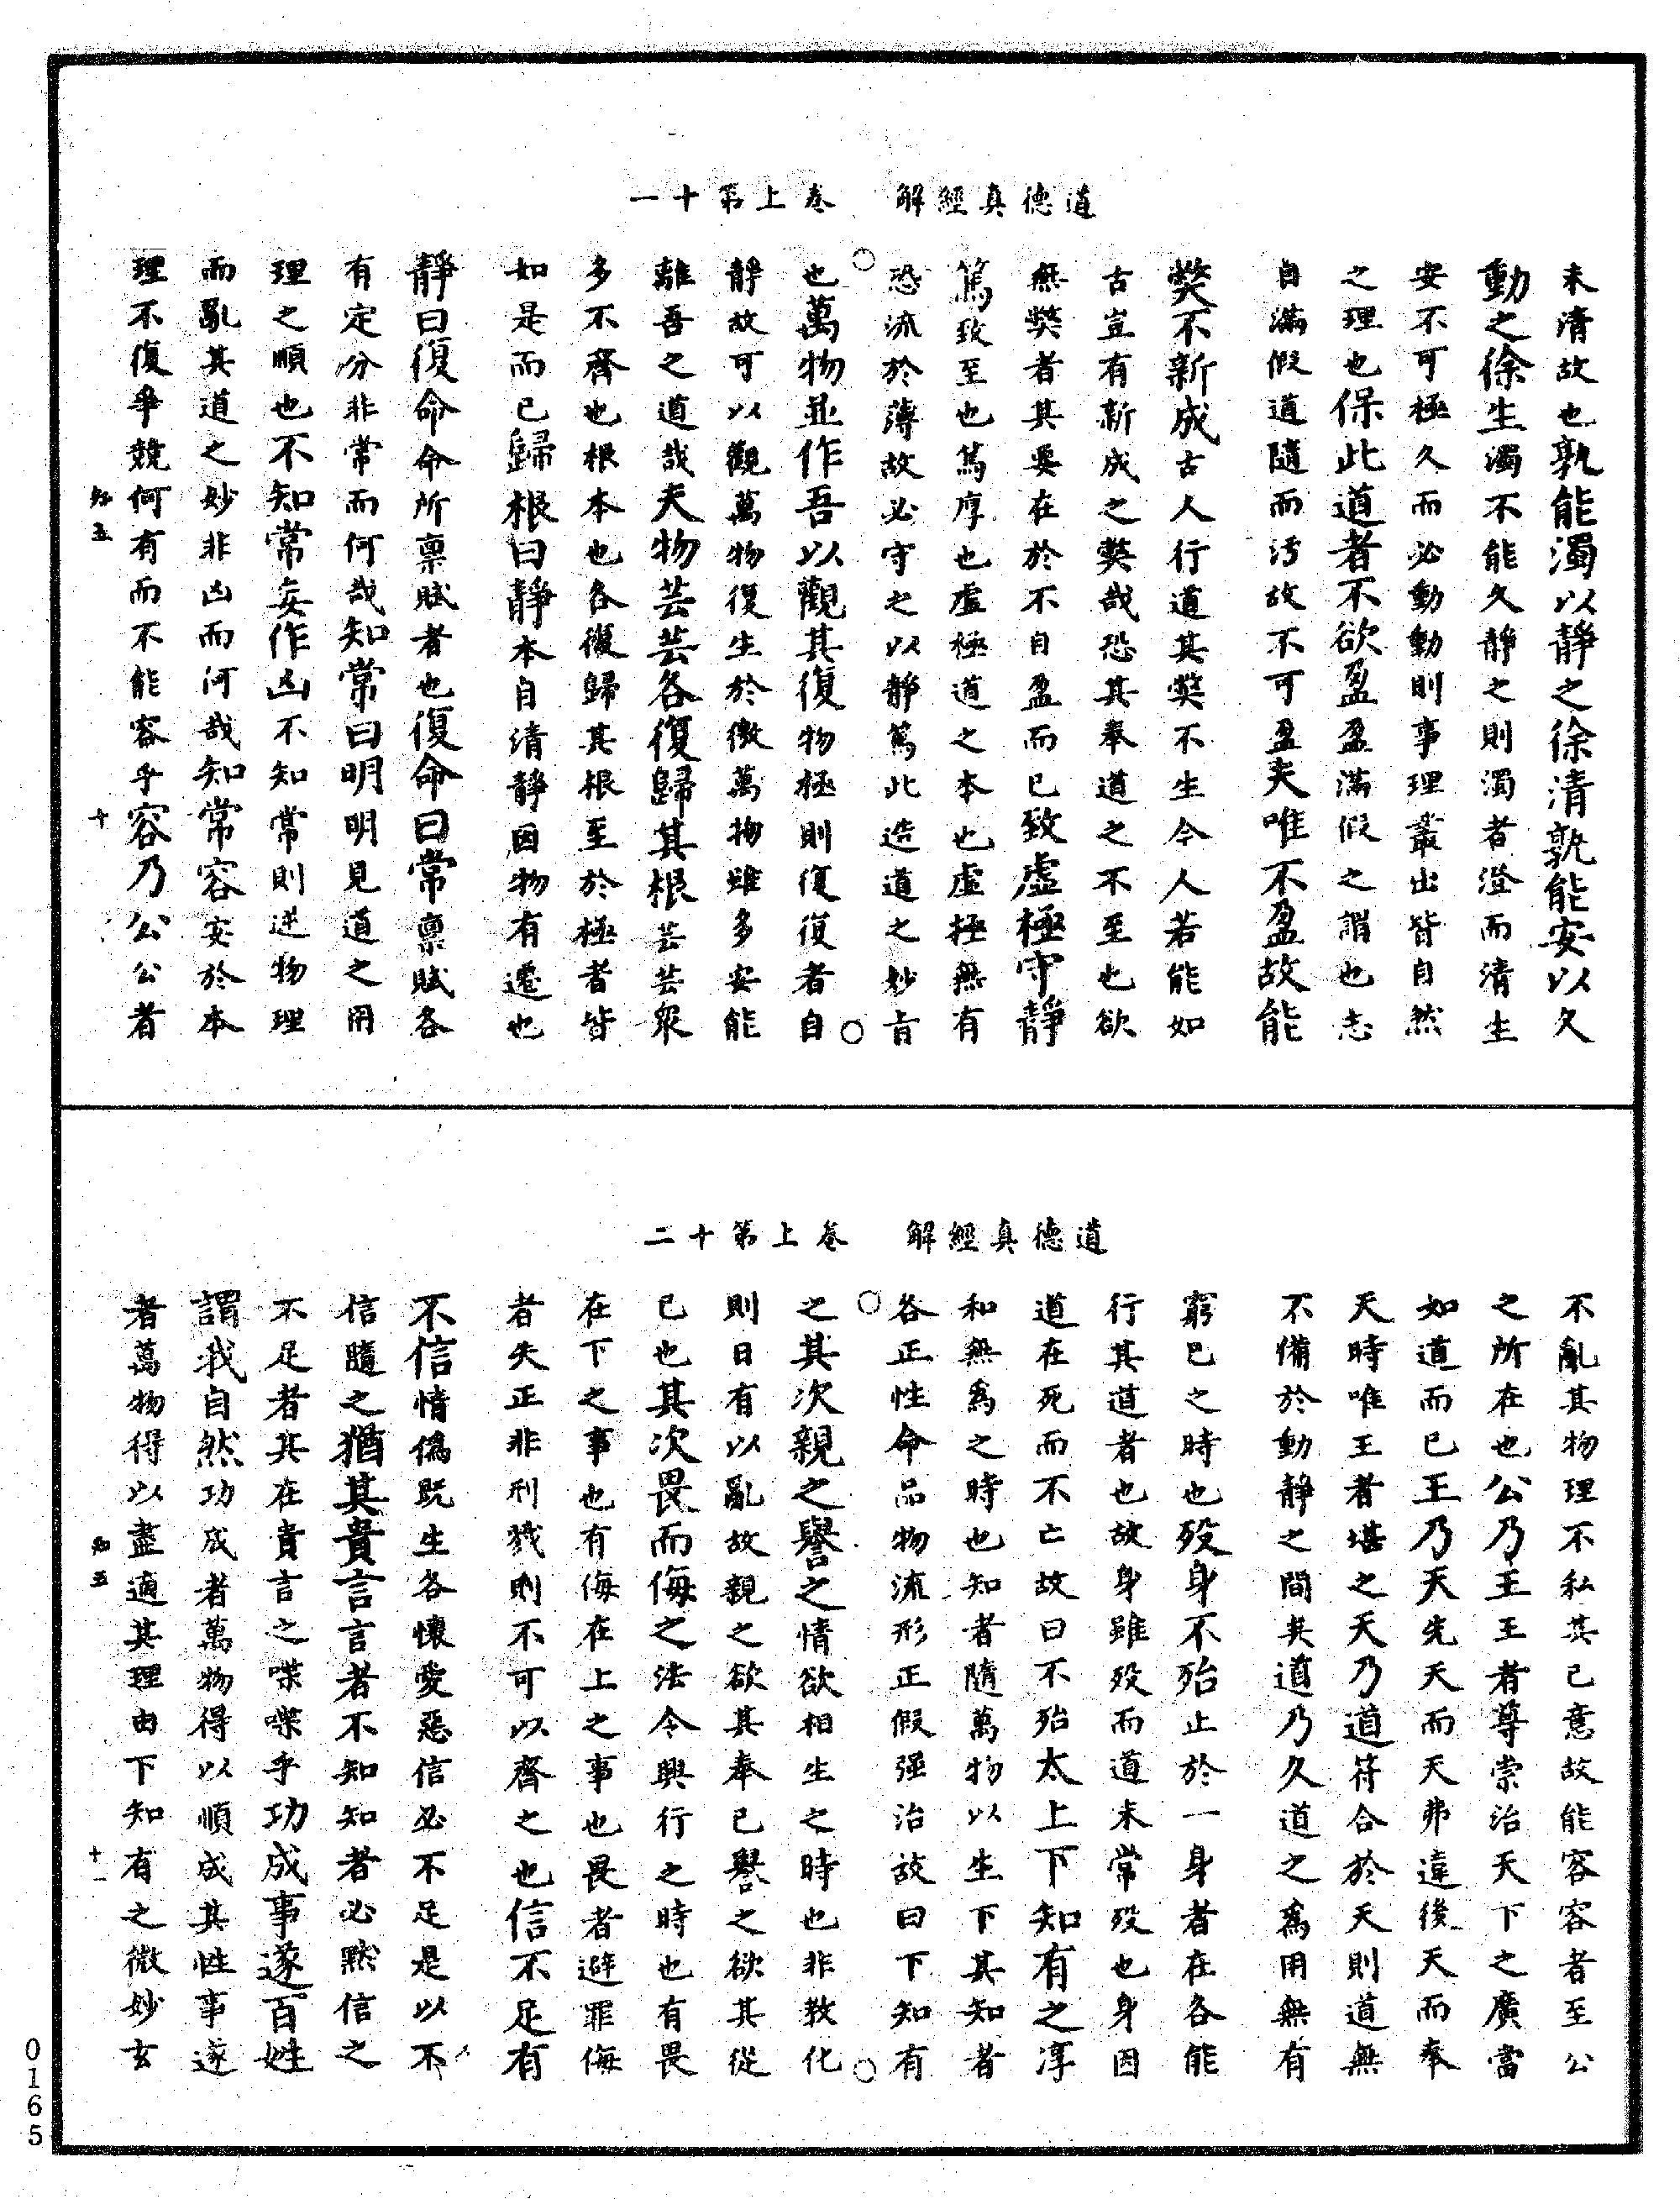 道德真經解　卷上第十一
未清故也孰能濁以靜之徐清孰能安以久
動之徐生濁不能久靜之則濁者澄而清生
安不可極久而必動動則事理叢出皆自然
之理也保此道者不欲盈盈滿假之謂也志
自滿假道隨而汚故不可盈夫唯不盈故能
弊不新成古人行道其弊不生今人若能如
古豈有新成之弊哉恐其奉道之不至也欲
無弊者其要在於不自盈而已致虛極守靜
篤致至也篤厚也虛極道之本也虛極無有
恐流於薄故必守之以靜篤此造道之妙旨
也萬物並作吾以觀其復物極則復復者自
靜故可以觀萬物復生於微萬物雖多安能
離吾之道哉夫物芸芸各復歸其根芸芸衆
多不齊也根本也各復歸其根至於極者皆
如是而已歸根曰靜本自清靜因物有遷也
靜曰復命命所稟賦者也復命曰常稟賦各
有定分非常而何哉知常曰明明見道之用
理之順也不知常妄作凶不知常則逆物理
而亂其道之妙非凶而何哉知常容安於本
理不復爭競何有而不能容乎容乃公公者
知五
十
道德真經解　卷上第十二
不亂其物理不私其己意故能容容者至公
之所在也公乃王王者尊崇治天下之廣當
如道而已王乃天先天而天弗違後天而奉
天時唯王者堪之天乃道符合於天則道無
不備於動靜之間矣道乃久道之爲用無有
窮已之時也歿身不殆止於一身者在各能
行其道者也故身雖歿而道未常歿也身因
道在死而不亡故曰不殆太上下知有之淳
和無爲之時也知者隨萬物以生下其知者
各正性命品物流形正假强治故曰下知有
之其次親之譽之情欲相生之時也非敎化
則日有以亂故親之欲其奉已譽之欲其從
已也其次畏而侮之法令興行之時也有畏
在下之事也有侮在上之事也畏者避罪侮
者失正非刑戮則不可以齊之也信不足有
不信情僞既生各懷愛惡信必不足是以不
信隨之猶其貴言言者不知知者必默信之
不足者其在貴言之喋喋乎功成事遂百姓
謂我自然功成者萬物得以順成其性事遂
者萬物得以盡適其理由下知有之微妙玄
知五
十一
0165